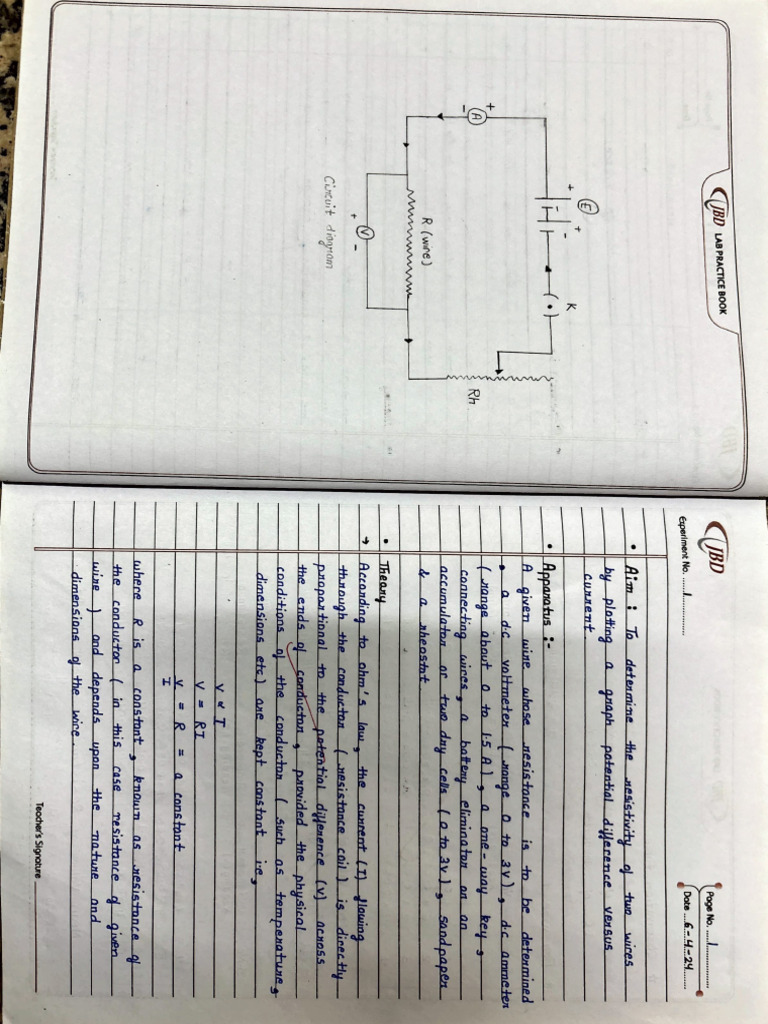 JBD LAB PRACTICE BOOK
E
+ -
+
K
(•)
+
A
-
Rh
R (wire)
+ V -
Circuit diagram
JBD
Experiment No. 1
Page No. 1
Date 6-4-24
• Aim : To determine the resistivity of two wires
by plotting a graph potential difference versus
current
• Apparatus :-
A given wire whose resistance is to be determined
, a d.c voltmeter ( range 0 to 3V ), d.c ammeter
( range about 0 to 1.5 A ), a one-way key,
connecting wires, a battery eliminator or an
accumulator or two dry cells ( 0 to 3V ), sandpaper
& a rheostat
• Theory
→ According to ohm's law, the current (I) flowing
through the conductor ( resistance coil ) is directly
proportional to the potential difference (v) across
the ends of conductor, provided the physical
conditions of the conductor ( such as temperature,
dimensions etc) are kept constant i.e,
V ∝ I
V = RI
V = R = a constant
I
where R is a constant, known as resistance of
the conductor ( in this case resistance of given
wire ) and depends upon the nature and
dimensions of the wire.
Teacher's Signature